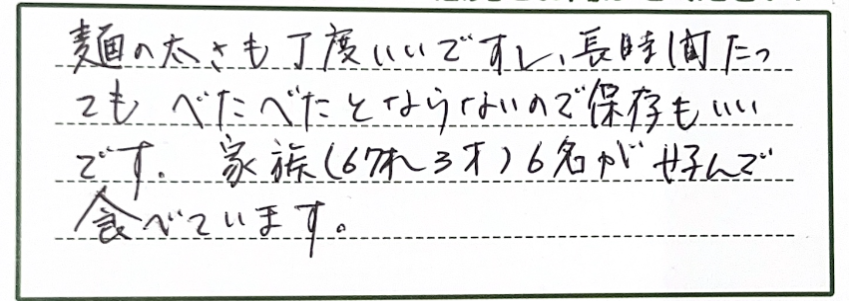 麺の太さも丁度いいですし、長時間たっ
てもべたべたとならないので保存もいい
です。家族(67才〜3才)6名が好んで
食べています。